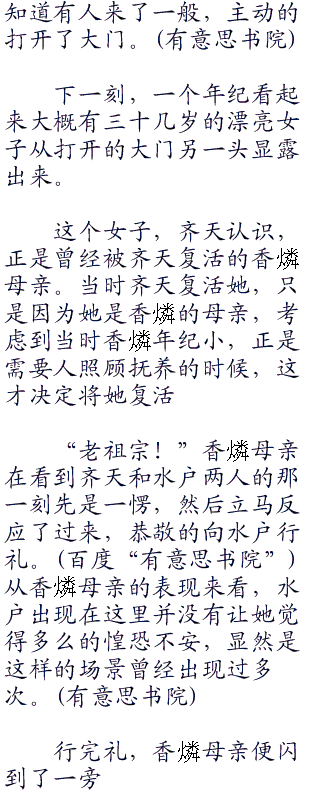 知道有人来了一般，主动的
打开了大门。(有意思书院)
下一刻，一个年纪看起
来大概有三十几岁的漂亮女
子从打开的大门另一头显露
出来。
这个女子，齐天认识，
正是曾经被齐天复活的香燐
母亲。当时齐天复活她，只
是因为她是香燐的母亲，考
虑到当时香燐年纪小，正是
需要人照顾抚养的时候，这
才决定将她复活
“老祖宗！”香燐母亲
在看到齐天和水户两人的那
一刻先是一愣，然后立马反
应了过来，恭敬的向水户行
礼。(百度“有意思书院”)
从香燐母亲的表现来看，水
户出现在这里并没有让她觉
得多么的惶恐不安，显然是
这样的场景曾经出现过多
次。(有意思书院)
行完礼，香燐母亲便闪
到了一旁